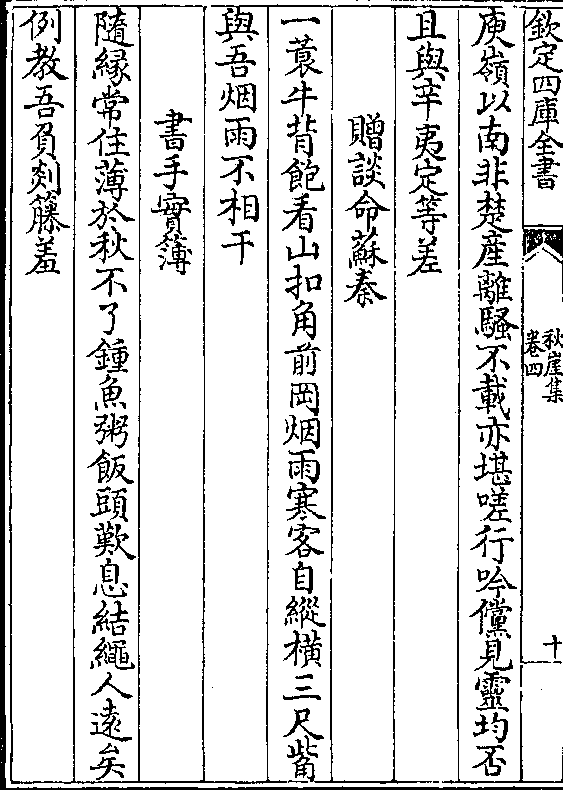 欽定四庫全書
秋崖集
卷四
十
庾嶺以南非楚産離騷不載亦堪嗟行吟儻見靈均否
且與辛夷定等差
贈談命蘇秦
一蓑牛背飽看山扣角前岡烟雨寒客自縱橫三尺觜
與吾烟雨不相干
書手實簿
隨緣常住薄於秋不了鍾魚粥飯頭歎息結繩人遠矣
例教吾負剡籐羞